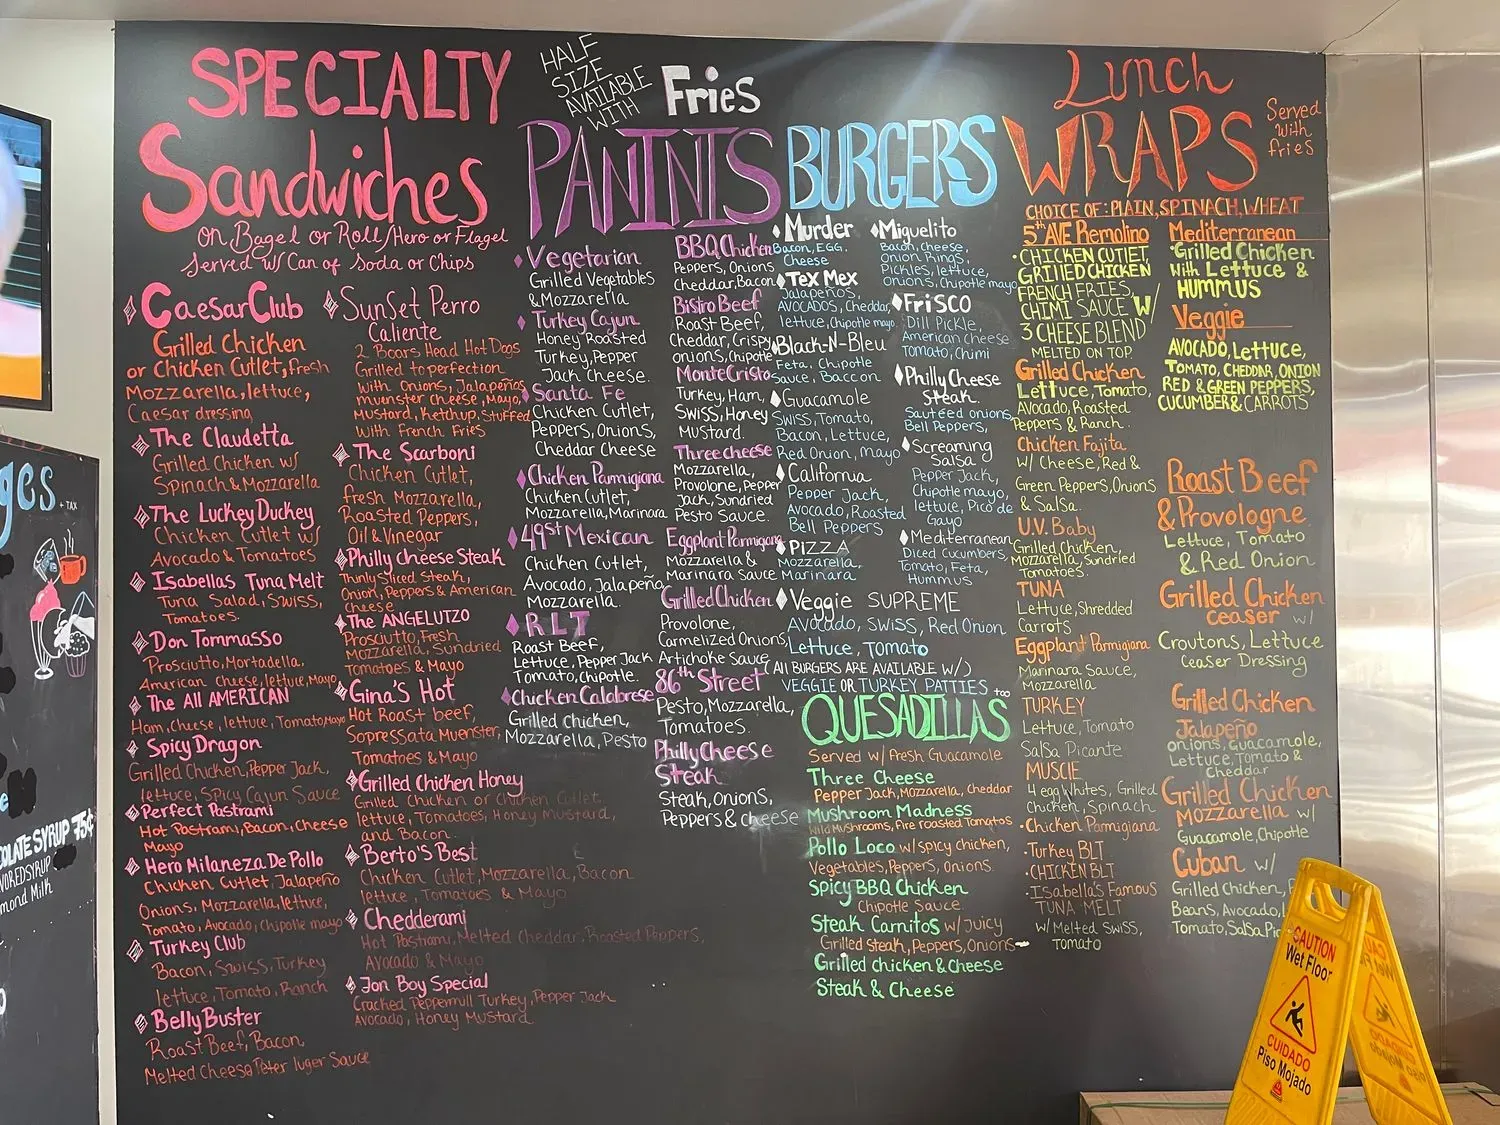 SPECIALTY
Sandwiches
on Bagel or Roll/Hero or Flagel
Served w/ Can of Soda or Chips
Caesar Club
Grilled Chicken
or Chicken Cutlet, fresh
Mozzarella, lettuce,
Caesar dressing
The Claudetta
Grilled Chicken w/
Spinach & Mozzarella
The Luckey Duckey
Chicken Cutlet w/
Avocado & Tomatoes
Isabellas Tuna Melt
Tuna Salad, Swiss,
Tomatoes.
Don Tommasso
Prosciutto, Mortadella,
American cheese, lettuce, Mayo
The All AMERICAN
Ham, Cheese, lettuce, Tomato, Mayo
Spicy Dragon
Grilled Chicken, Pepper Jack,
lettuce, Spicy Cajun Sauce
Perfect Pastrami
Hot Pastrami, Bacon, Cheese
Mayo
Hero Milaneza De Pollo
Chicken Cutlet, Jalapeño
Onions, Mozzarella, lettuce,
Tomato, Avocado, Chipotle mayo
Turkey Club
Bacon, Swiss, Turkey
lettuce, Tomato, Ranch
Belly Buster
Roast Beef, Bacon,
Melted Cheese Peter luger Sauce
Sunset Perro
Caliente
2 Boars Head Hot Dogs
Grilled to perfection
with Onions, Jalapeños
muenster cheese, Mayo,
Mustard, Ketchup, Stuffed
with French Fries
The Scarboni
Chicken Cutlet,
fresh Mozzarella,
Roasted Peppers,
Oil & Vinegar
Philly Cheese Steak
Thinly Sliced Steak,
Onion, Peppers & American
Cheese
The ANGELUTZO
Prosciutto, Fresh
Mozzarella, Sundried
Tomatoes & Mayo
Gina's Hot
Hot Roast beef,
Sopressata Muenster,
Tomatoes & Mayo
Grilled Chicken Honey
Grilled Chicken or Chicken Cutlet
lettuce, Tomatoes, Honey Mustard,
and Bacon.
Berto's Best
Chicken Cutlet, Mozzarella, Bacon
lettuce, Tomatoes & Mayo
Chedderami
Hot Pastrami, Melted Cheddar, Roasted Peppers,
Avocado & Mayo
Jon Boy Special
Cracked Peppermull Turkey, Pepper Jack
Avocado, Honey Mustard
HALF
SIZE
AVAILABLE
WITH
Fries
PANINIS
Vegetarian
Grilled Vegetables
& Mozzarella
Turkey Cajun
Honey Roasted
Turkey, Pepper
Jack Cheese.
Santa Fe
Chicken Cutlet,
Peppers, Onions,
Cheddar Cheese
Chicken Parmigiana
Chicken Cutlet,
Mozzarella, Marinara
49st Mexican
Chicken Cutlet,
Avocado, Jalapeño,
Mozzarella.
RLT
Roast Beef,
Lettuce, Pepper Jack
Tomato, Chipotle.
Chicken Calabrese
Grilled Chicken,
Mozzarella, Pesto
BBQ Chicken
Peppers, Onions
Cheddar, Bacon
Bistro Beef
Roast Beef,
Cheddar, Crispy
onions, Chipotle
Monte Cristo
Turkey, Ham,
Swiss, Honey
Mustard.
Three cheese
Mozzarella,
Provolone, Pepper
Jack, Sundried
Pesto Sauce.
Eggplant Parmigiana
Mozzarella &
Marinara Sauce
Grilled Chicken
Provolone,
Carmelized Onions,
Artichoke Sauce
86th Street
Pesto, Mozzarella,
Tomatoes.
Philly Cheese
Steak
Steak, Onions,
Peppers & cheese
BURGERS
Murder
Bacon, EGG.
Cheese
Tex Mex
Jalapeños,
AVOCADOS, Cheddar,
lettuce, Chipotle mayo
Black-N-Bleu
Feta, Chipotle
Sauce, Baccon
Guacamole
Swiss, Tomato,
Bacon, Lettuce,
Red Onion, Mayo
California
Pepper Jack,
Avocado, Roasted
Bell Peppers
PIZZA
Mozzarella,
Marinara
Veggie SUPREME
Avocado, Swiss, Red Onion
Lettuce, Tomato
Miquelito
Bacon, Cheese,
Onion Rings,
Pickles, lettuce,
onions, Chipotle mayo
Frisco
Dill Pickle,
American Cheese
Tomato, Chimi
Philly Cheese
Steak.
Sautéed onions,
Bell Peppers,
Screaming
Salsa
Pepper Jack,
Chipotle mayo,
lettuce, Pico de
Gayo
Mediterranean
Diced Cucumbers,
Tomato, Feta,
Hummus
(ALL BURGERS ARE AVAILABLE W/)
VEGGIE OR TURKEY PATTIES too
QUESADILLAS
Served w/ Fresh Guacamole
Three Cheese
Pepper Jack, Mozzarella, Cheddar
Mushroom Madness
Wild Mushrooms, Fire roasted Tomatos
Pollo Loco w/ Spicy chicken,
Vegetables, Peppers, Onions.
Spicy BBQ Chicken
Chipotle Sauce.
Steak Carnitos w/ Juicy
Grilled Steak, Peppers, Onions
Grilled chicken & Cheese
Steak & Cheese
Lunch
WRAPS
Served
with
fries
CHOICE OF: PLAIN, SPINACH, WHEAT
5th AVE Remolino
CHICKEN CUTLET,
GRILLED CHICKEN
FRENCH FRIES,
CHIMI SAUCE W/
3 CHEESE BLEND
MELTED ON TOP.
Grilled Chicken
Lettuce, Tomato,
Avocado, Roasted
Peppers & Ranch.
Chicken Fajita
w/ Cheese, Red &
Green Peppers, Onions
& Salsa.
U.V. Baby
Grilled Chicken,
Mozzarella, Sundried
Tomatoes.
TUNA
Lettuce, Shredded
Carrots
Eggplant Parmigiana
Marinara Sauce,
Mozzarella
TURKEY
Lettuce, Tomato
Salsa Picante
MUSCIE
4 egg Whites, Grilled
Chicken, Spinach
Chicken Parmigiana
Turkey BLT
CHICKEN BLT
Isabella's Famous
TUNA MELT
w/ Melted Swiss,
Tomato
Mediterranean
Grilled Chicken
With Lettuce &
HUMMUS
Veggie
AVOCADO, Lettuce,
TOMATO, CHEDDAR, ONION
RED & GREEN PEPPERS,
CUCUMBER & CARROTS
Roast Beef
& Provologne.
Lettuce, Tomato
& Red Onion
Grilled Chicken
Ceaser w/
Croutons, Lettuce
Ceaser Dressing
Grilled Chicken
Jalapeño
onions, Guacamole,
Lettuce, Tomato &
Cheddar
Grilled Chicken
Mozzarella w/
Guacamole, Chipotle
Cuban w/
Grilled Chicken,
Beans, Avocado,
Tomato, Salsa
ges + TAX
OLATE SYRUP 75¢
VORED SYRUP
mond Milk
CAUTION
Wet Floor
CUIDADO
Piso Mojado